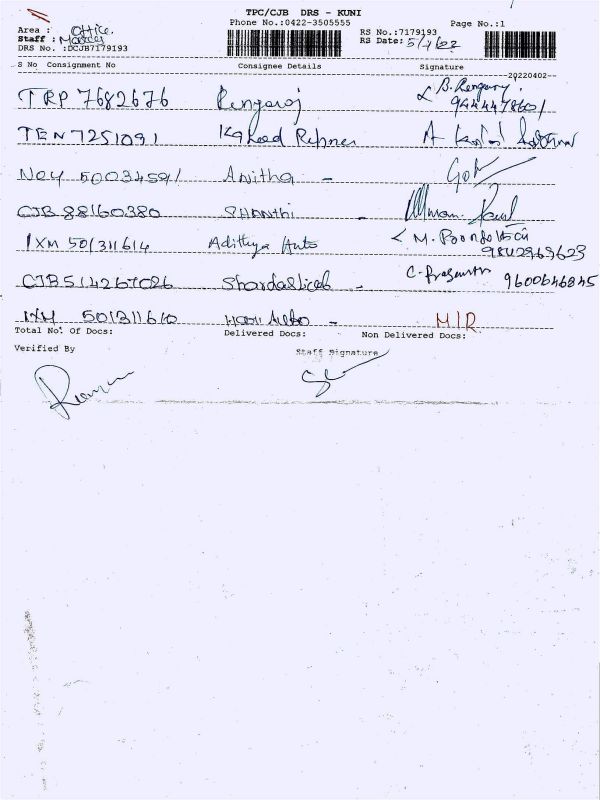 TPC/CJB DRS - KUNI
Phone No.:0422-3505555
Page No.:1
Area : Office.
RS No.:7179193
Staff :
RS Date: 5/4/22
DRS No. :DCJB7179193
S No Consignment No Consignee Details Signature
20220402
TRP 7682676 Rengaraj B. Rengaraj
TEN 7251091
NOY 50034591 Anitha -
CJB 88160380 SHANTHI -
IXM 501311614 Adithya Auto M.
9842969623
CJB 514267026 - C. Prasanth 9600646845
IXM 501311610 Hari Auto - M/R
Total No. Of Docs: Delivered Docs: Non Delivered Docs:
Verified By Staff Signature